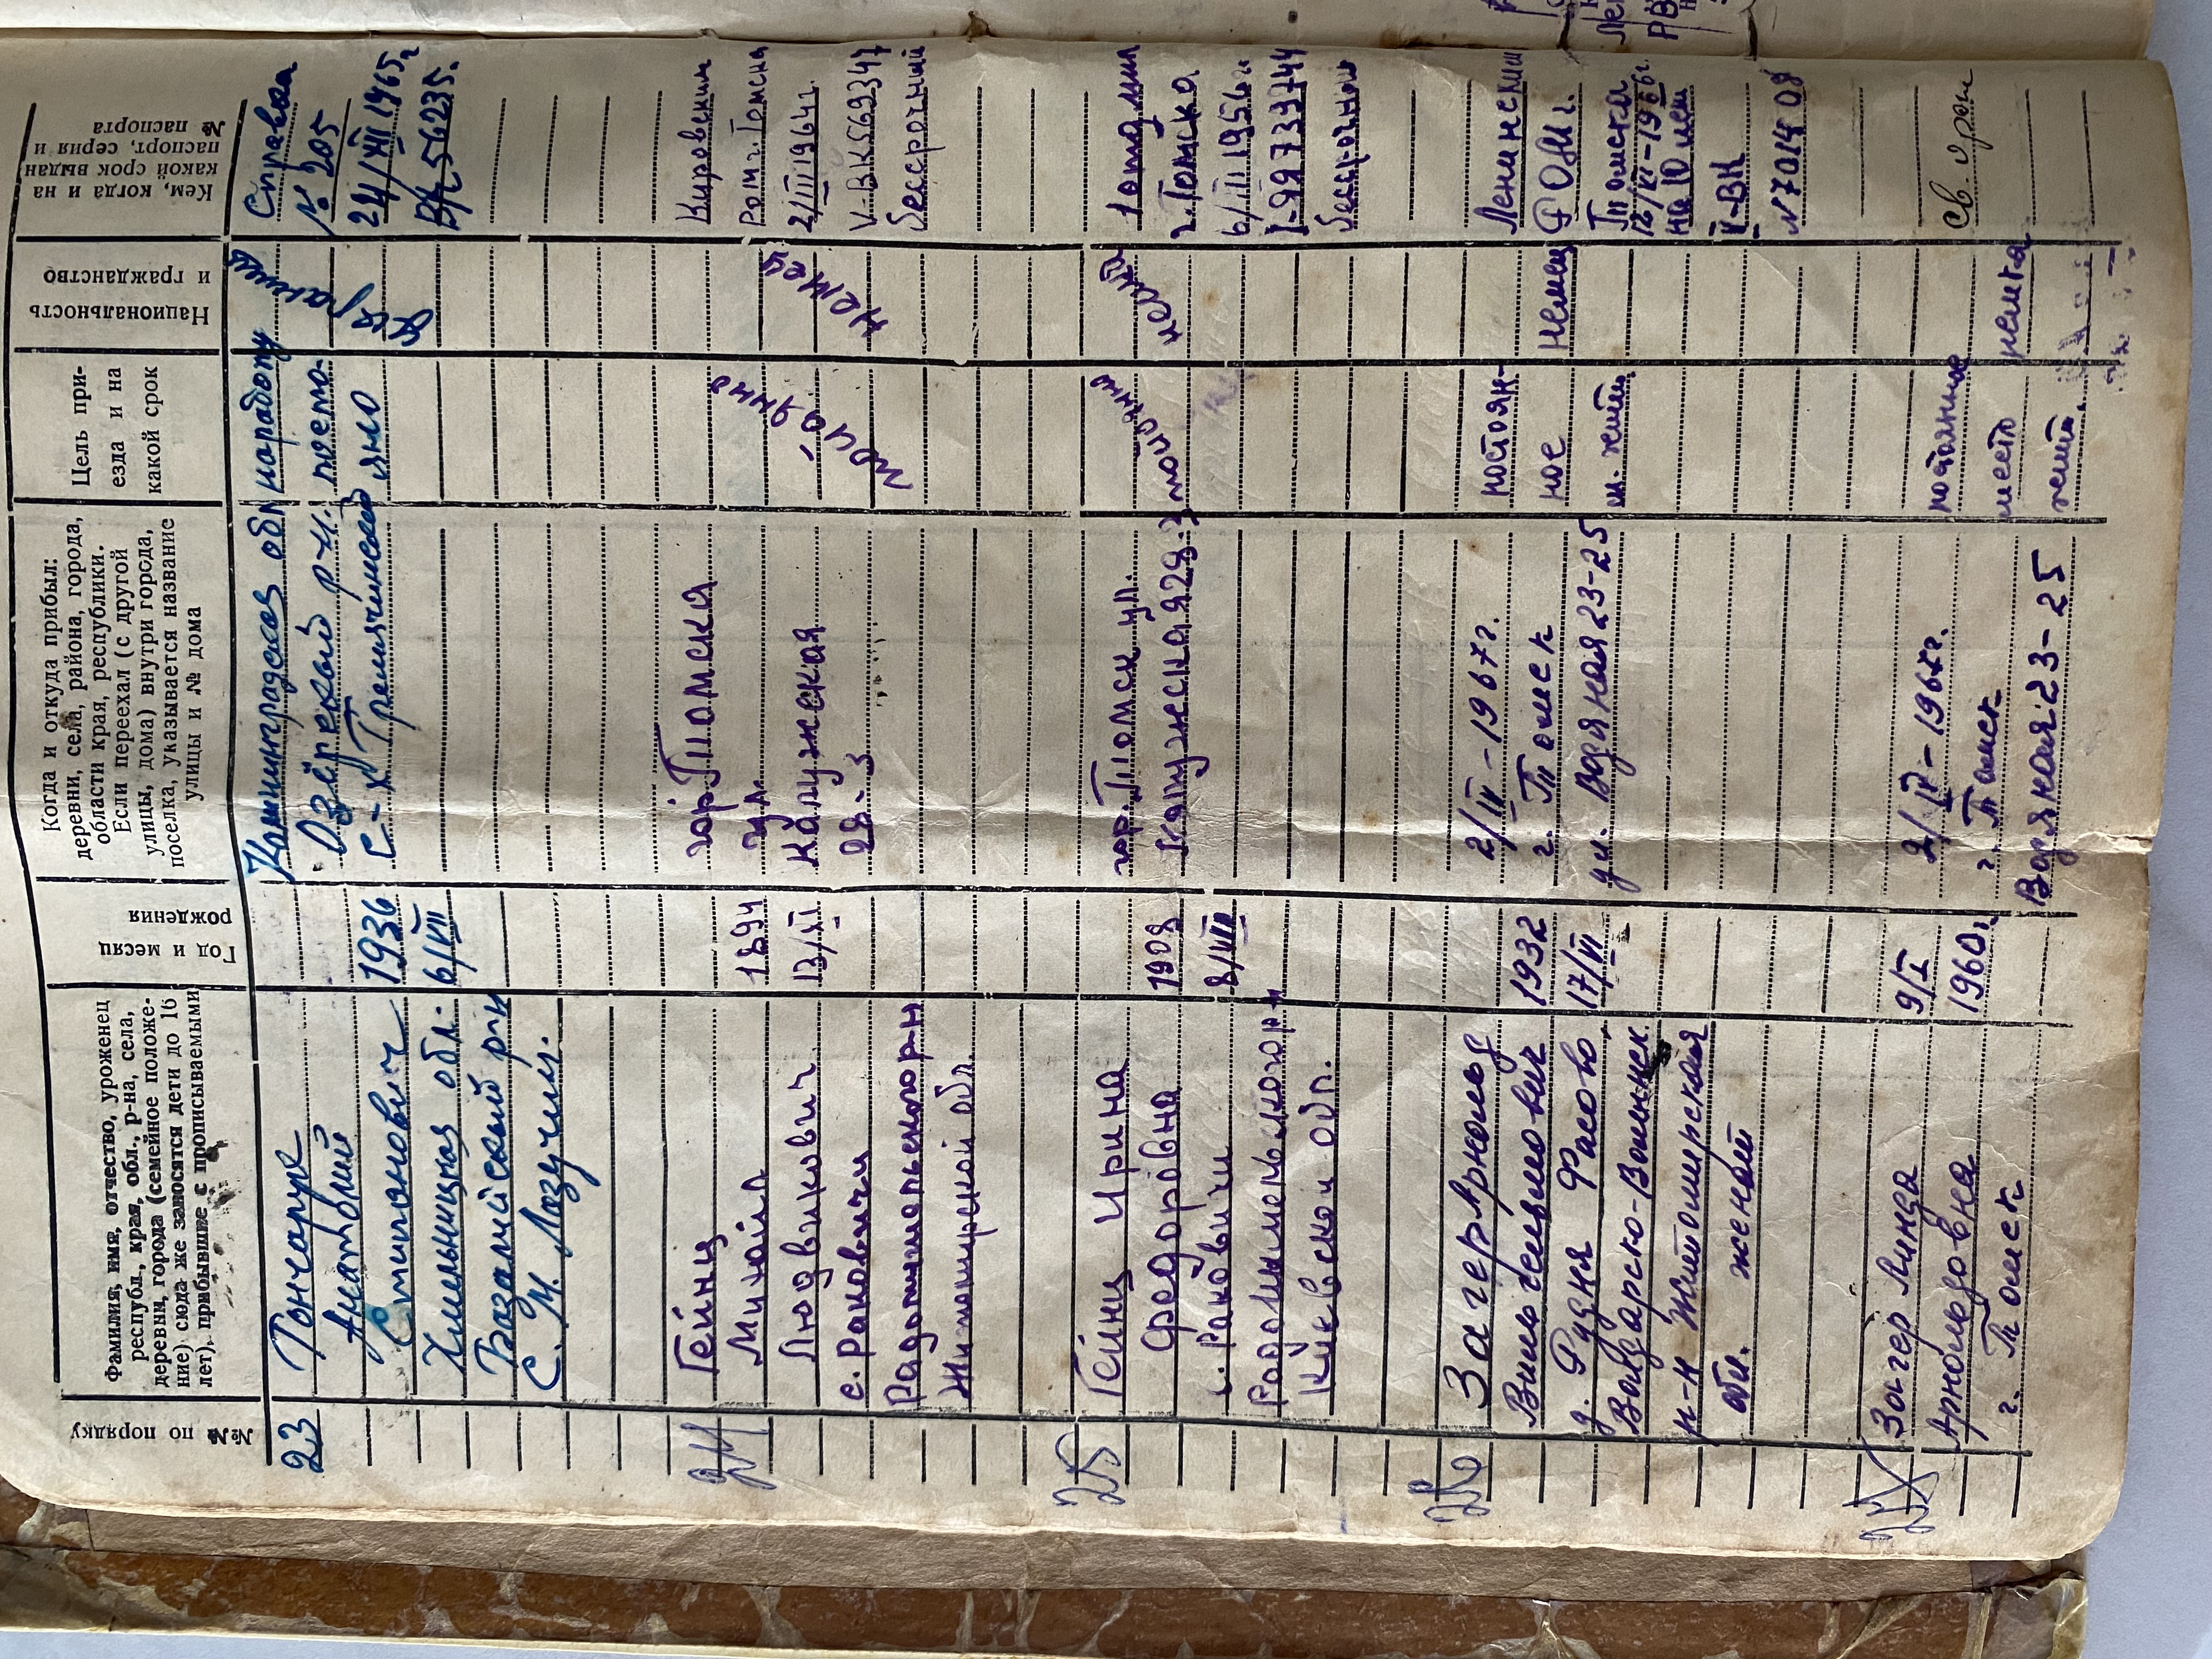 №№ по порядку
Фамилия, имя, отчество, уроженец
республ., края, обл., р-на, села,
деревни, города (семейное положе-
ние) сюда же заносятся дети до 16
лет), прибывшие с прописываемыми
Год и месяц
рождения
Когда и откуда прибыл:
деревни, села, района, города,
области края, республики.
Если переехал (с другой
улицы, дома) внутри города,
поселка, указывается название
улицы и № дома
Цель при-
езда и на
какой срок
Национальность
и гражданство
Кем, когда и на
какой срок выдан
паспорт, серия и
№ паспорта
23
Гончарук
Анатолий
Степанович
Хмельницкая обл.
Базалийский р-н
с. М. Лазучин.
1936
6/VIII
Калининградская обл
Озёрский р-н.
с-х Тремячинский
на работу
посто-
янно
Справка
№ 205
24/XII 1965г
24
Гейнц
Михаил
Людвикович
с. Раковичи
Радомышельского р-н
Житомирской обл.
1894
13/XI
гор. Томска
ул.
Калужская
28-3
постоянно
немец
Кировским
РОМ г. Томска
2/III 1964г.
V-ВК 569347
бессрочный
25
Гейнц Ирина
Федоровна
с. Раковичи
Радомышельского р-н
Киевской обл.
1908
8/VIII
гор. Томск ул.
Калужская 28-3
1 отд. мил
г. Томска
6/II 1956 г
бессрочный
26
Загер Арнольд
Вильгельмович
д. Рудня Фасово
Володарско-Волынск
р-н Житомирская
обл. женат
1932
17/VI
2/IV-1967г.
г. Томск
ул. Водяная 23-25
постоян-
ное
м. жит.
немец
Ленинским
РОМ г.
Томска
12/XI-1966г.
на 10 лет
V-ВК
№ 701408
27
Загер Линда
Арнольдовна
г. Томск
9/I
1960г.
2/IV-1967г.
г. Томск
Водяная 23-25
постоянное
место
жит.
немка
св. о рож